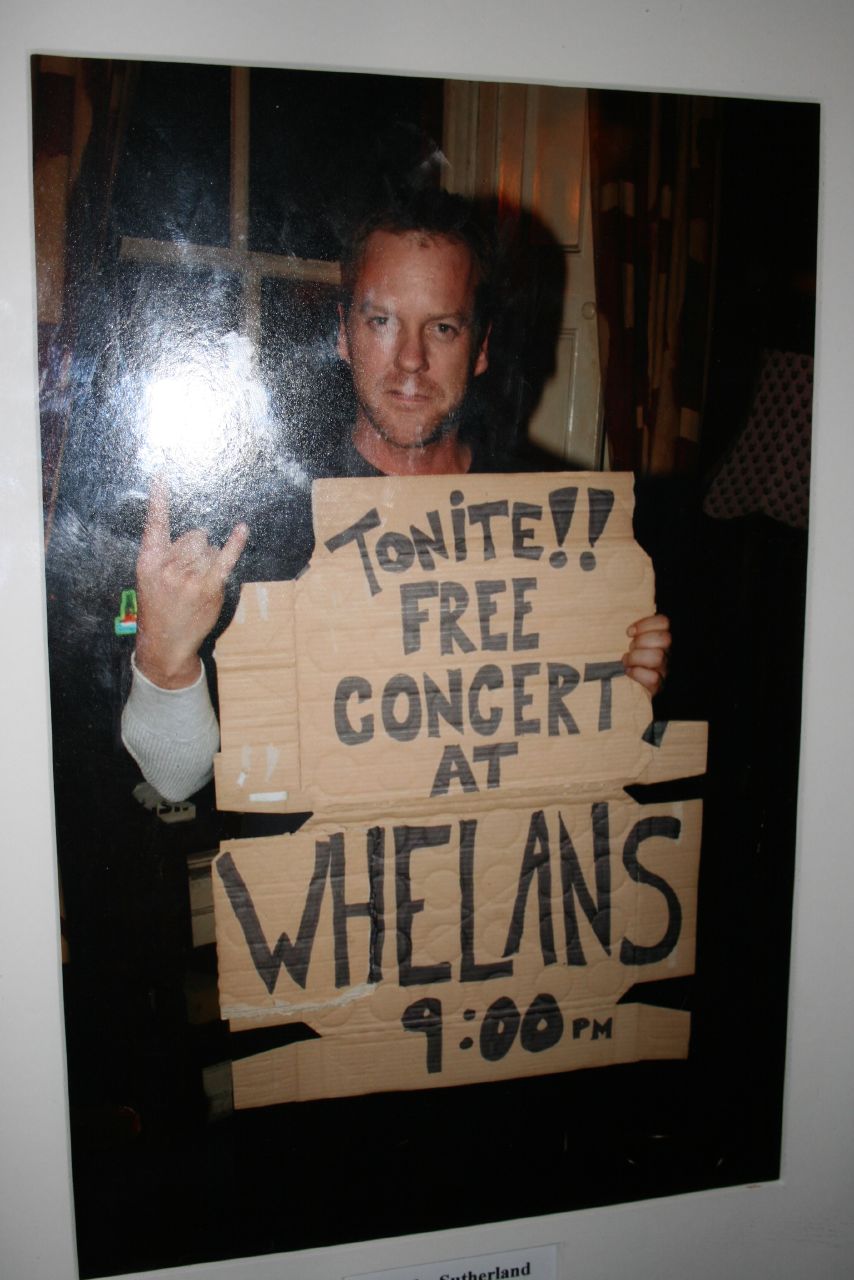 TONITE!!
FREE
CONCERT
AT
WHELANS
9:00 PM
Sutherland